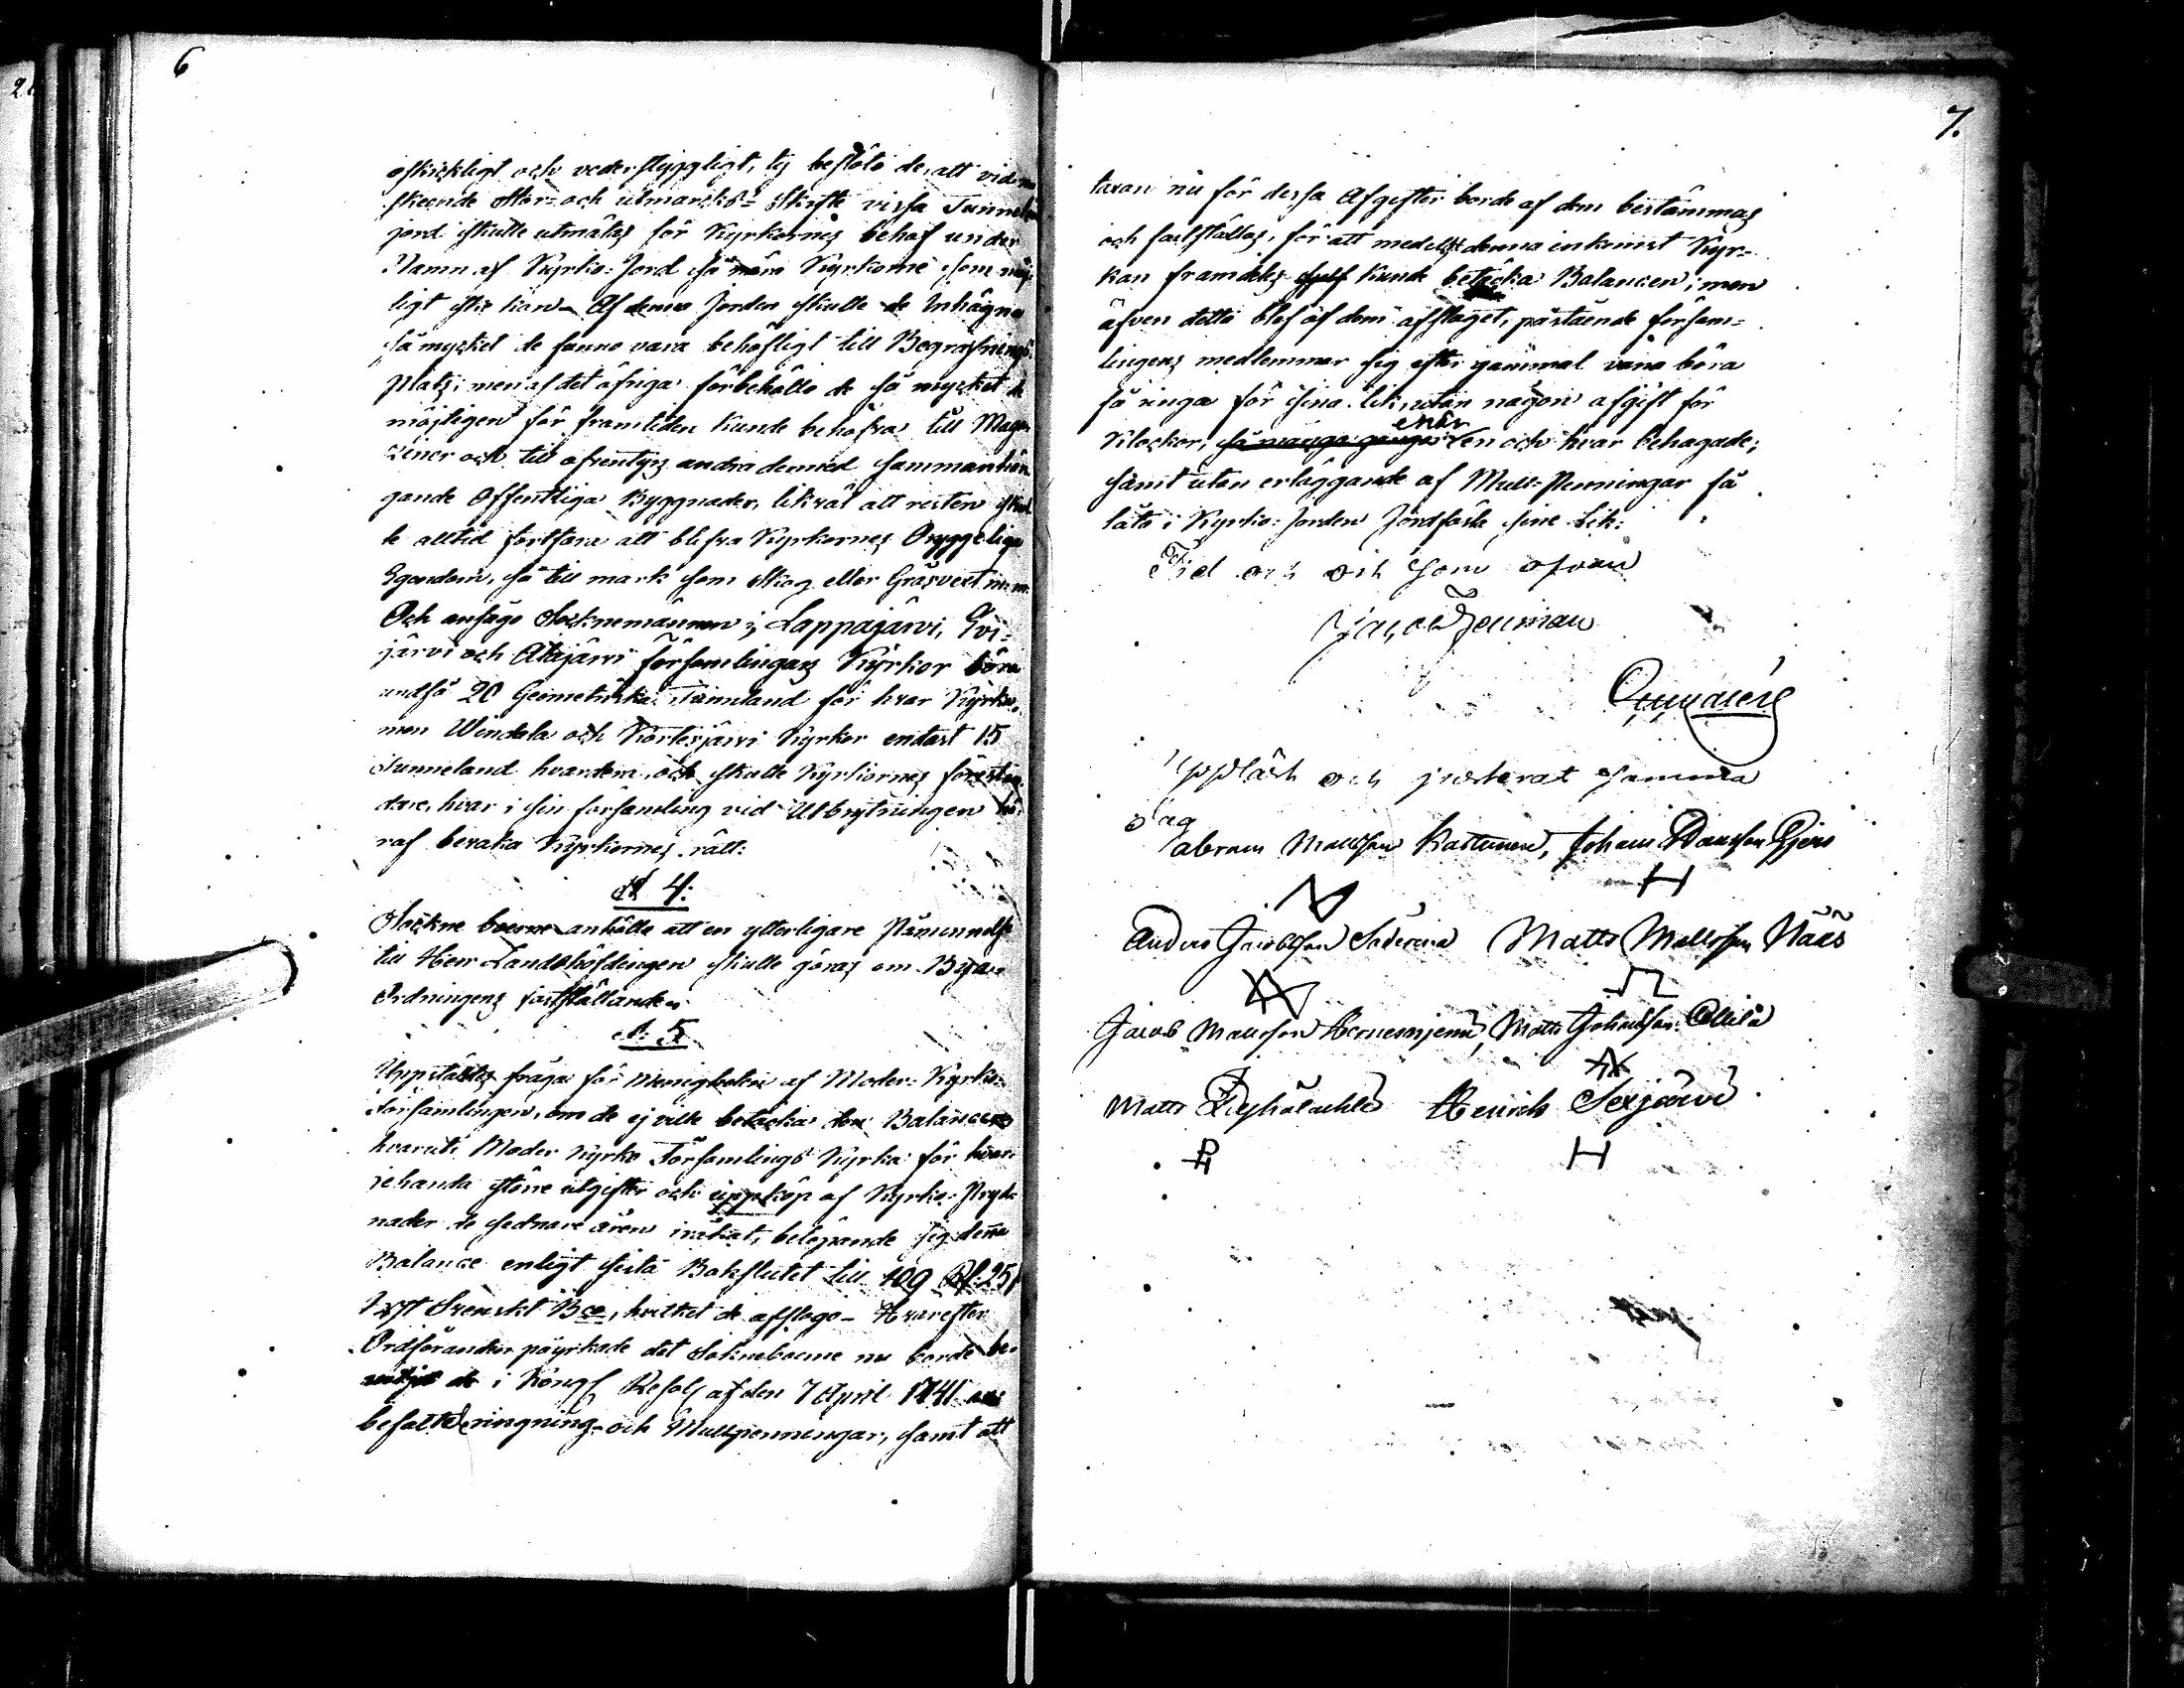 6
oskickligt och vederstyggligt, ty beslöto de, att vid nu
skeende Stor- och utmarcks- Skifte vissa Tunneland
jord skulle utmätas för Kyrkornes behof under
Namn af Kyrko-Jord så nära Kyrkorne som möj-
ligt ske kan. Af denna Jorden skulle de Inhägna
så mycket de funno vara behöfligt till Begrafnings
Plats; men af det öfriga förbehöllo de så mycket de
möjligen för framtiden kunde behöfva till Maga-
ziner och till äfventyrs andra dermed sammanhän-
gande Offentliga Byggnader, likväl att resten skul-
le alltid fortfara att blifva Kyrkornes Orygge liga
Egendom, så till mark som Skog eller Gräsvext m.m.
Och ansågo Socknemännen i Lappajärvi, Evi-
järvi och Alajärvi församlingars Kyrkor böra
undfå 20 Geometriska Tunnland för hvar Kyrka,
men Windala och Kortesjärvi Kyrkor endast 15
Tunneland hvardera, och skulle Kyrkornes förestån-
dare, hvar i sin församling vid Utbrytningen hä-
raf bevaka Kyrkornes rätt.
§ 4:
Sockne boerne anhöllo att en ytterligare Påminnelse
till Herr Landshöfdingen skulle göras om Bya-
Ordningens fastställande.
§. 5
Uppstältes fråga för Menigheten af Moder-Kyrko-
Församlingen, om de ej ville betäcka den Balancen
hvaruti Moder Kyrko Församlings Kyrka för hvar-
jehanda större utgifter och uppköp af Kyrko-Pryd-
nader de sednare åren iråkat, belöpande sig denna
Balance enligt sista Bokslutet till 109 Rf: 25 s
Svenskt Bco, hvilket de afslogo - Hvarefter
Ordföranden påyrkade det Sokneboerne nu borde be-
de i Kongl Resol af den 7 April 1741
befalte ringning- och Mullpenningar, samt att
7.
taxan nu för dessa Afgifter borde af dem bestämmas
och fastställas, för att medelst denna inkomst Kyr-
kan framdeles sjelf kunde betäcka Balancen; men
äfven detta blef af dem afslaget, påstående försam-
lingens medlemmar sig efter gammal vana böra
få ringa för sina lik, utan någon afgift för
Klockor, så många gånger enär en och hvar behagade;
samt utan erläggande af Mull-Penningar få
låta i Kyrko-Jorden Jordfästa sine Lik:
Tid och ort som ofvan
Uppläst och justerat samma
dag
Abram Mattsson Kastunen, Johan Dansson Gjers
Anders Jacobsson Matts Mattsson Näes
Jacob Matts Johansson Ollila
Matts Henrik Sexjärvi